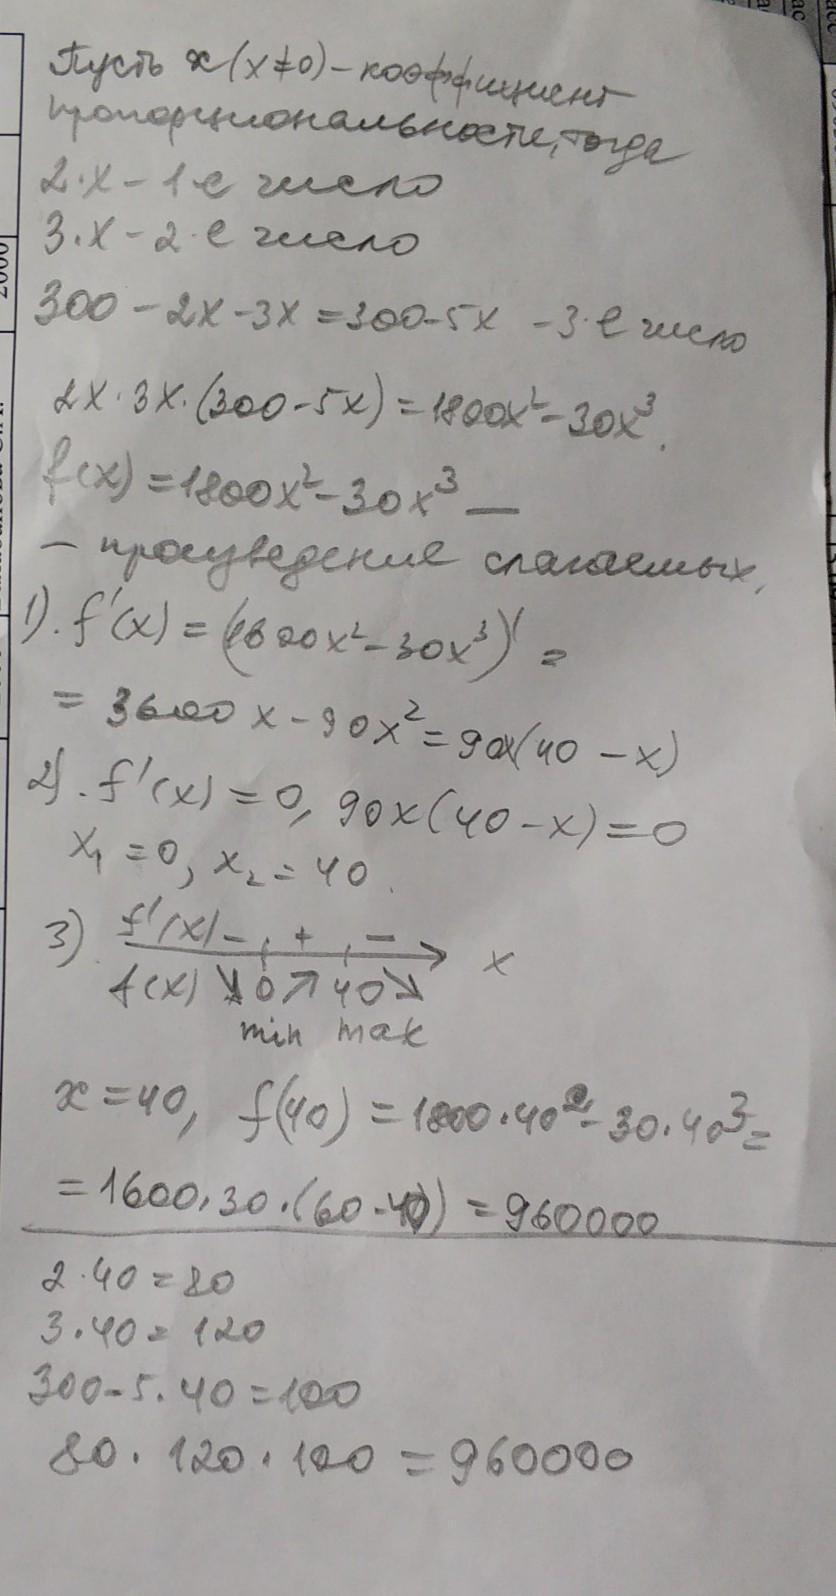 Пусть x (x≠0) – коэффициент
пропорциональности, тогда
2·x – 1-е число
3·x – 2-е число
300 – 2x – 3x = 300-5x – 3-е число
2x·3x·(300-5x) = 1800x² – 30x³.
f(x) = 1800x² – 30x³ —
– произведение слагаемых.
1). f'(x) = (1800x² – 30x³)' =
= 3600x – 90x² = 90x(40 – x)
2). f'(x) = 0, 90x(40 – x) = 0
x₁ = 0, x₂ = 40.
3) f'(x) – + – x
f(x) ↘ 0 ↗ 40 ↘
min max
x = 40, f(40) = 1800·40² – 30·40³ =
= 1600·30·(60-40) = 960000
2·40 = 80
3·40 = 120
300-5·40 = 100
80·120·100 = 960000
2000